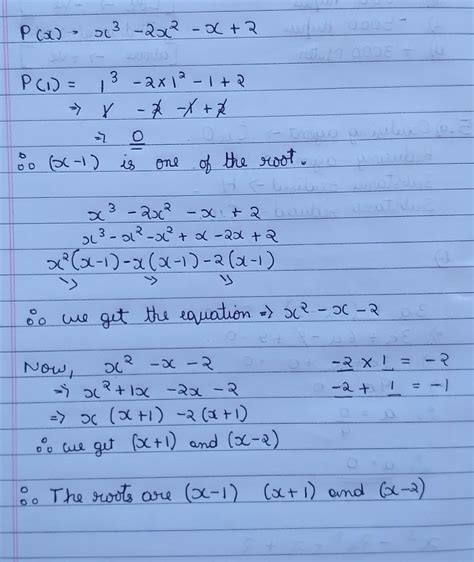 P(x) = x³ - 2x² - x + 2
P(1) = 1³ - 2×1² - 1 + 2
⇒ 1 - 2 - 1 + 2
⇒ 0
∴ (x-1) is one of the root.
x³ - 2x² - x + 2
x³ - x² - x² + x - 2x + 2
x²(x-1) - x(x-1) - 2(x-1)
∴ we get the equation ⇒ x² - x - 2
Now, x² - x - 2 -2 × 1 = -2
⇒ x² + 1x - 2x - 2 -2 + 1 = -1
⇒ x (x+1) - 2(x+1)
∴ we get (x+1) and (x-2)
∴ The roots are (x-1) (x+1) and (x-2)